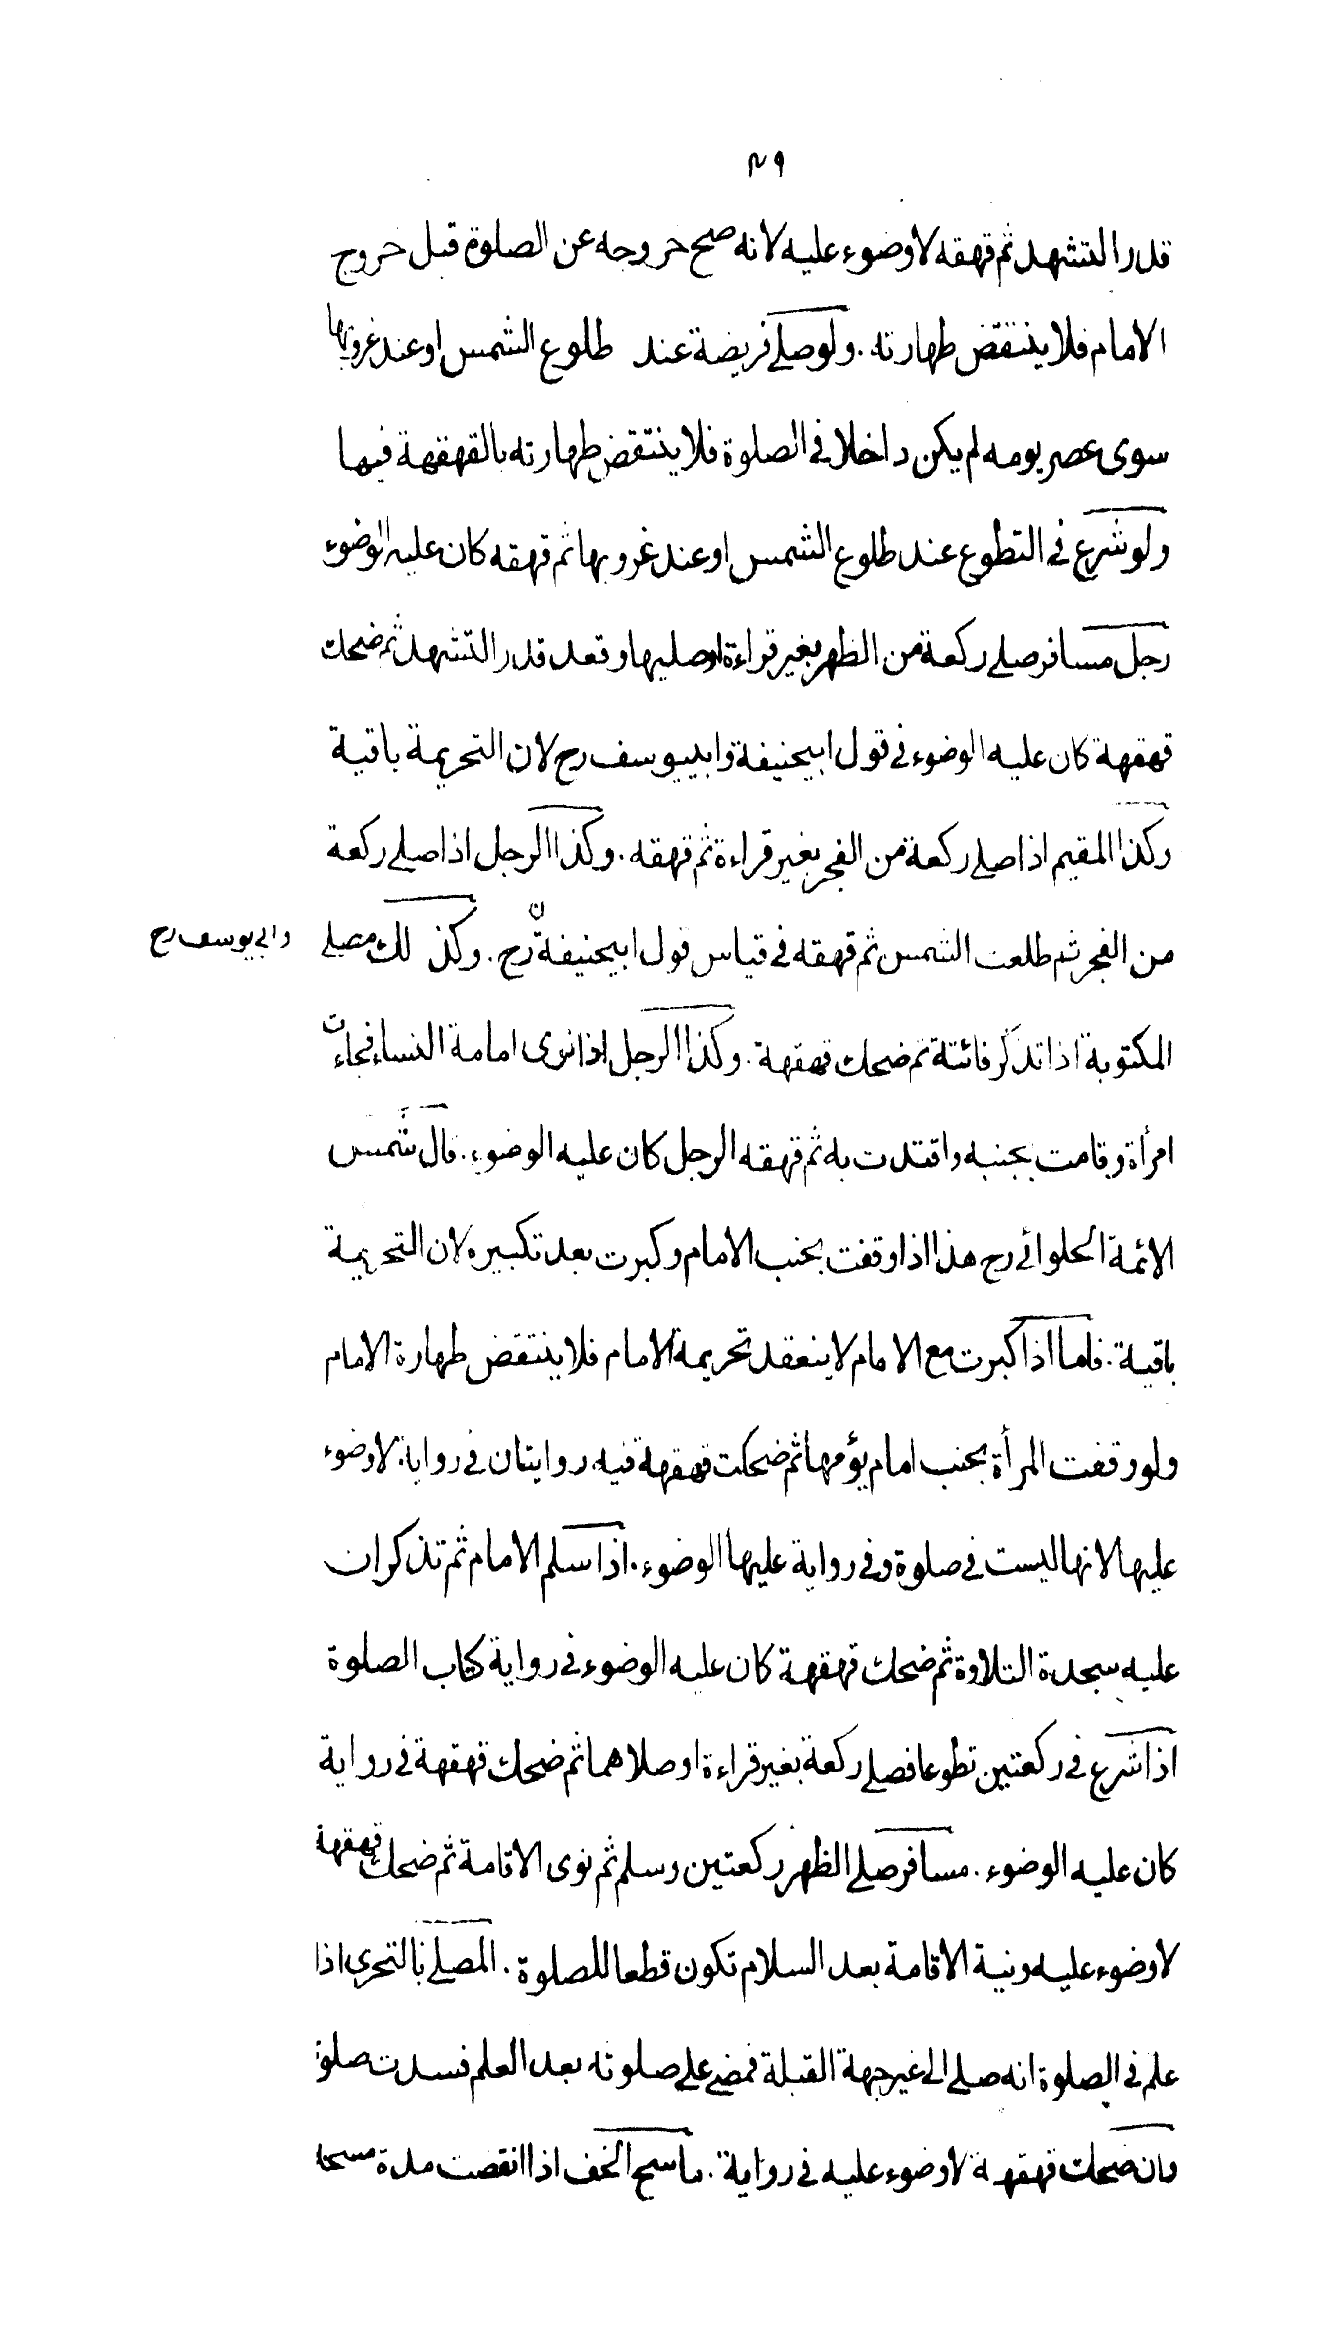 ٤٩
قدر التشهد ثم قهقه لا وضوء عليه لانه صح خروجه عن الصلوة قبل خروج
الامام فلا ينتقض طهارته . ولو صلى فريضة عند طلوع الشمس او عند غروبها
سوى عصر يومه لم يكن داخلا فى الصلوة فلا ينتقض طهارته بالقهقهة فيها
ولو شرع فى التطوع عند طلوع الشمس او عند غروبها ثم قهقه كان عليه الوضوء
رجل مسافر صلى ركعة من الظهر بغير قراءة او صليها وقعد قدر التشهد ثم ضحك
قهقهة كان عليه الوضوء فى قول ابيحنيفة وابييوسف رح لان التحريمة باقية
وكذا المقيم اذا صلى ركعة من الفجر بغير قراءة ثم قهقه . وكذا الرجل اذا صلى ركعة
من الفجر ثم طلعت الشمس ثم قهقه فى قياس قول ابيحنيفة رح . وكذلك مصلى
وابي يوسف رح
المكتوبة اذا تذكر فائتة ثم ضحك قهقهة . وكذا الرجل اذا نوى امامة النساء فجاءت
امرأة وقامت بجنبه واقتدت به ثم قهقه الرجل كان عليه الوضوء . قال شمس
الائمة الحلوائى رح هذا اذا وقفت بجنب الامام وكبرت بعد تكبيره لان التحريمة
باقية . فاما اذا كبرت مع الامام لا ينعقد تحريمة الامام فلا ينتقض طهارة الامام
ولو وقفت المرأة بجنب امام يؤمها ثم ضحكت قهقهة فيه روايتان فى رواية لا وضوء
عليها لانها ليست فى صلوة وفى رواية عليها الوضوء . اذا سلم الامام ثم تذكر ان
عليه سجدة التلاوة ثم ضحك قهقهة كان عليه الوضوء فى رواية كتاب الصلوة
اذا شرع فى ركعتين تطوعا فصلى ركعة بغير قراءة او صلاهما ثم ضحك قهقهة فى رواية
كان عليه الوضوء . مسافر صلى الظهر ركعتين وسلم ثم نوى الاقامة ثم ضحك قهقهة
لا وضوء عليه ونية الاقامة بعد السلام تكون قطعا للصلوة . المصلى بالتحرى اذا
علم فى الصلوة انه صلى الى غير جهة القبلة فمضى على صلوته بعد العلم فسدت صلوته
وان ضحك قهقهة لا وضوء عليه فى رواية . ماسح الخف اذا انقضت مدة مسحه